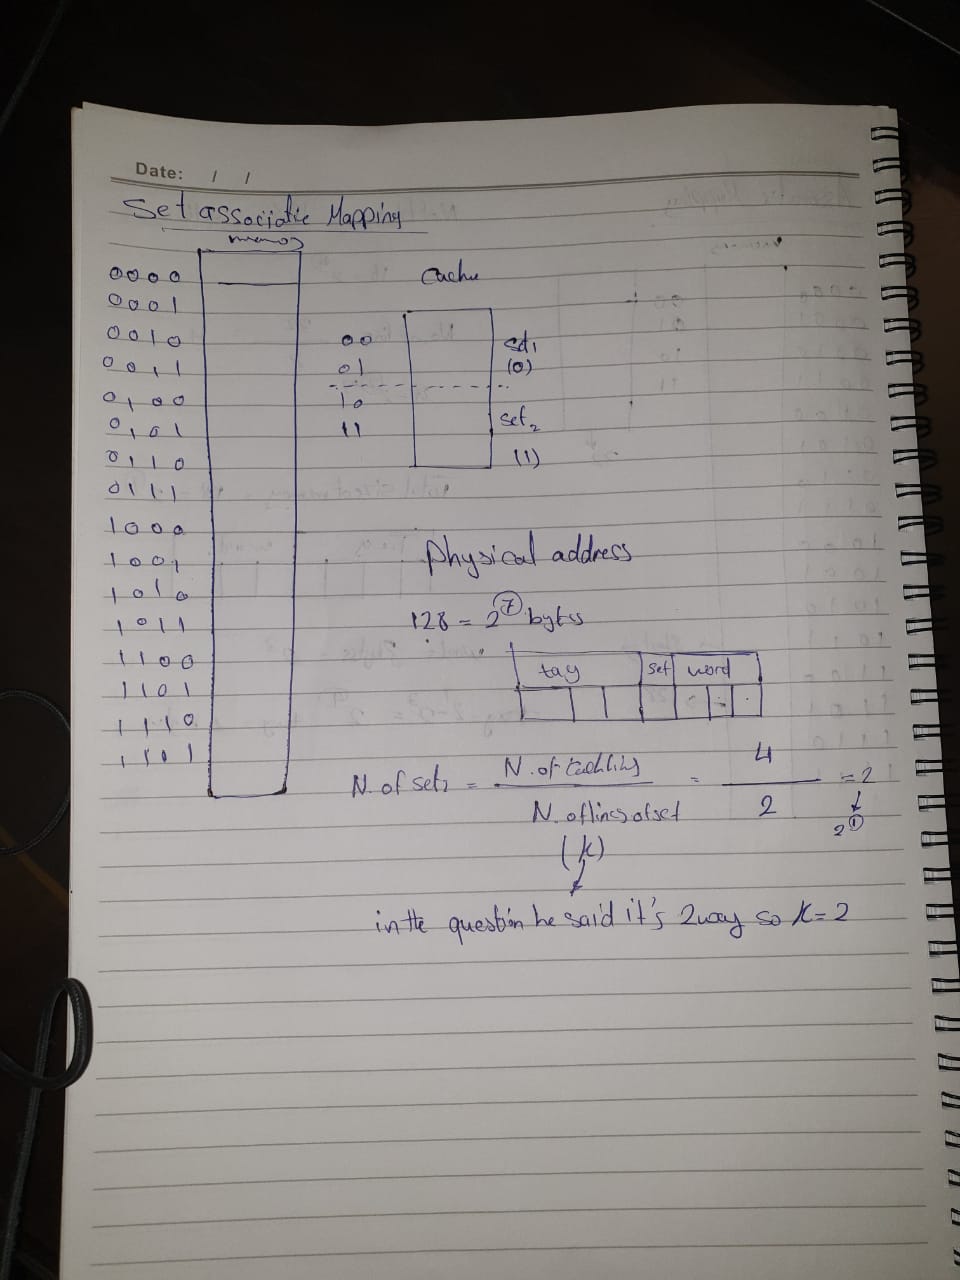 Date: / /
Set associative Mapping
memory
0000
0001
0010
0011
0100
0101
0110
0111
1000
1001
1010
1011
1100
1101
1110
1101
Cache
00
01
10
11
set1
(0)
set2
(1)
Physical address
128 = 2^7 bytes
tag set word
N. of sets = N. of cach lins / N. of lines of set = 4 / 2 = 2
2^1
(k)
in the question he said it's 2way so K=2